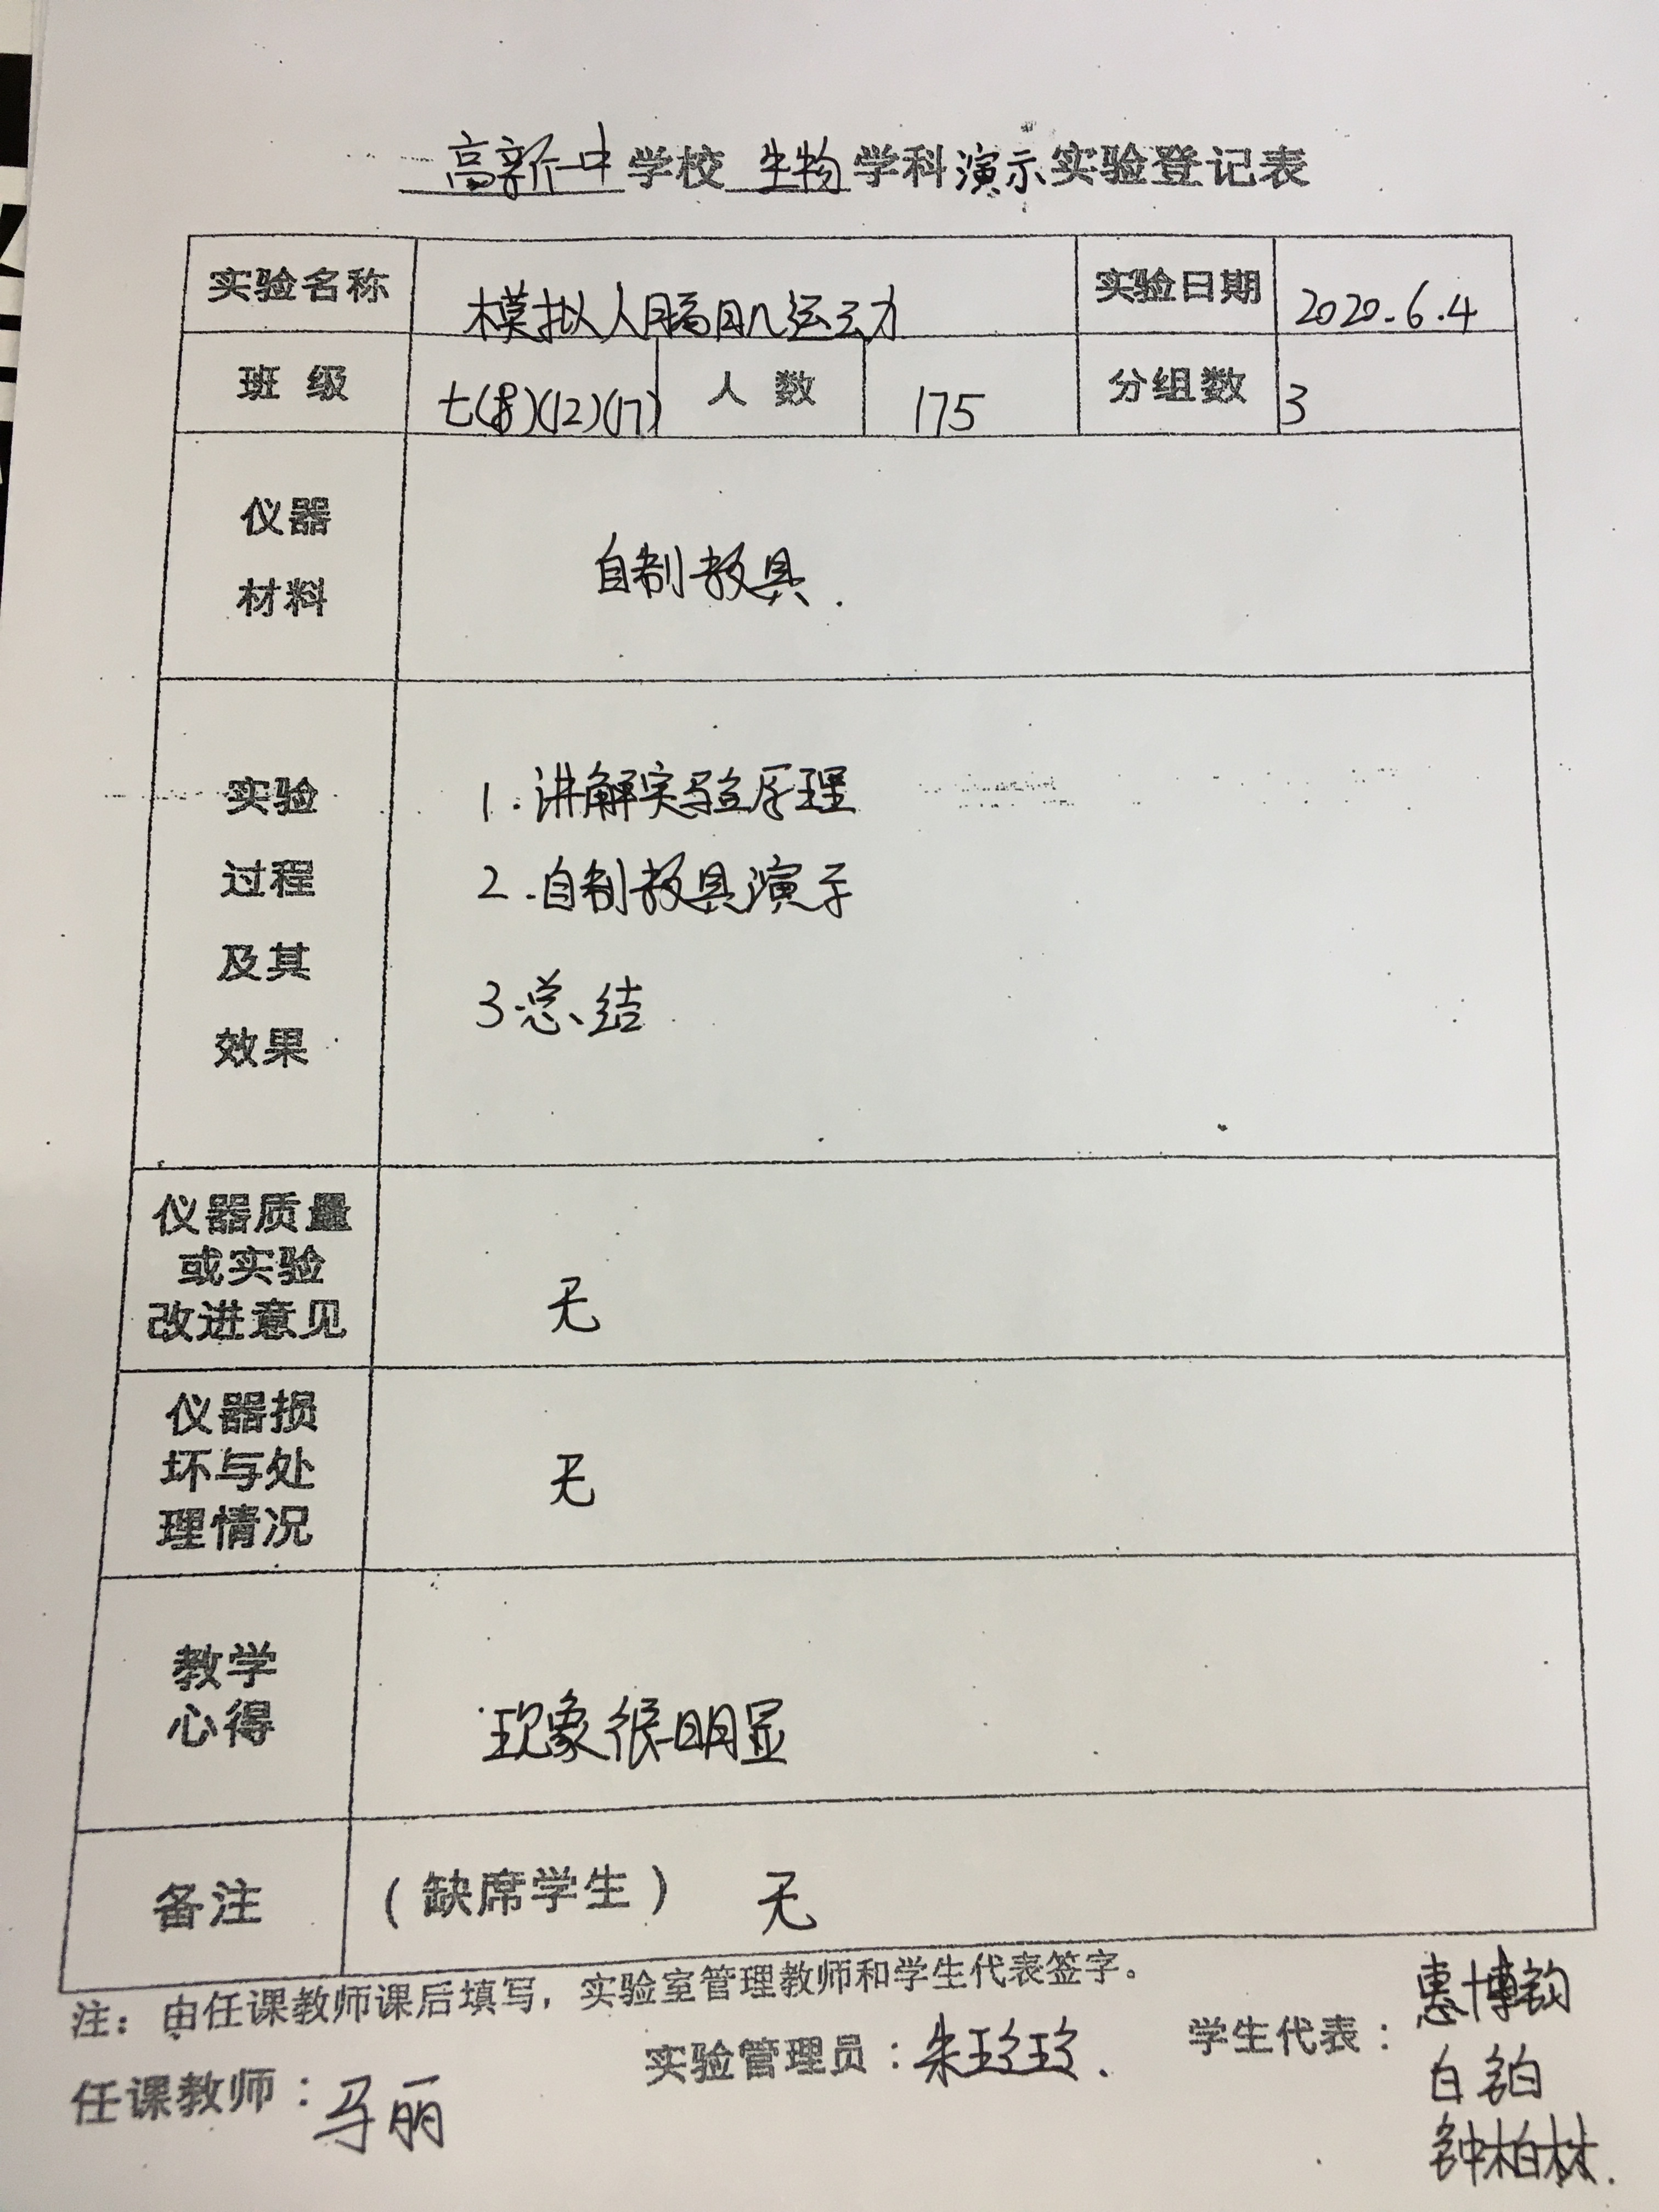 高新一中学校 生物学科演示实验登记表
实验名称 模拟人膈肌运动 实验日期 2020.6.4
班 级 七(8)(12)(17) 人 数 175 分组数 3
仪器
材料
自制教具.
实验
过程
及其
效果
1.讲解实验原理
2.自制教具演示
3.总结
仪器质量
或实验
改进意见
无
仪器损
坏与处
理情况
无
教学
心得
现象很明显
备注 (缺席学生) 无
注：由任课教师课后填写，实验室管理教师和学生代表签字。
任课教师：马丽 实验管理员：朱玲玲. 学生代表：惠博韵
白铂
钟柏林.